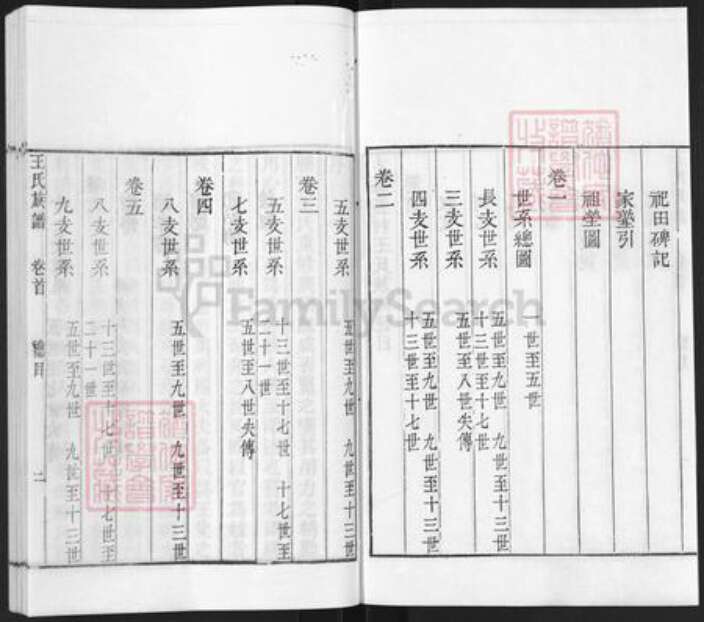 祀田碑記
家塋引
祖塋圖
卷一
世系總圖 一世至五世
長支世系 五世至九世 九世至十三世
十三世至十七世
三支世系 五世至八世失傳
四支世系 五世至九世 九世至十三世
十三世至十七世
卷二
五支世系 五世至九世 九世至十三世
卷三
五支世系 十三世至十七世 十七世至
二十一世
七支世系 五世至八世失傳
卷四
八支世系 五世至九世 九世至十三世
卷五
八支世系 十三世至十七世 十七世至
二十一世
九支世系 五世至九世 九世至十三世
王氏族譜 卷首 總目 二
FamilySearch